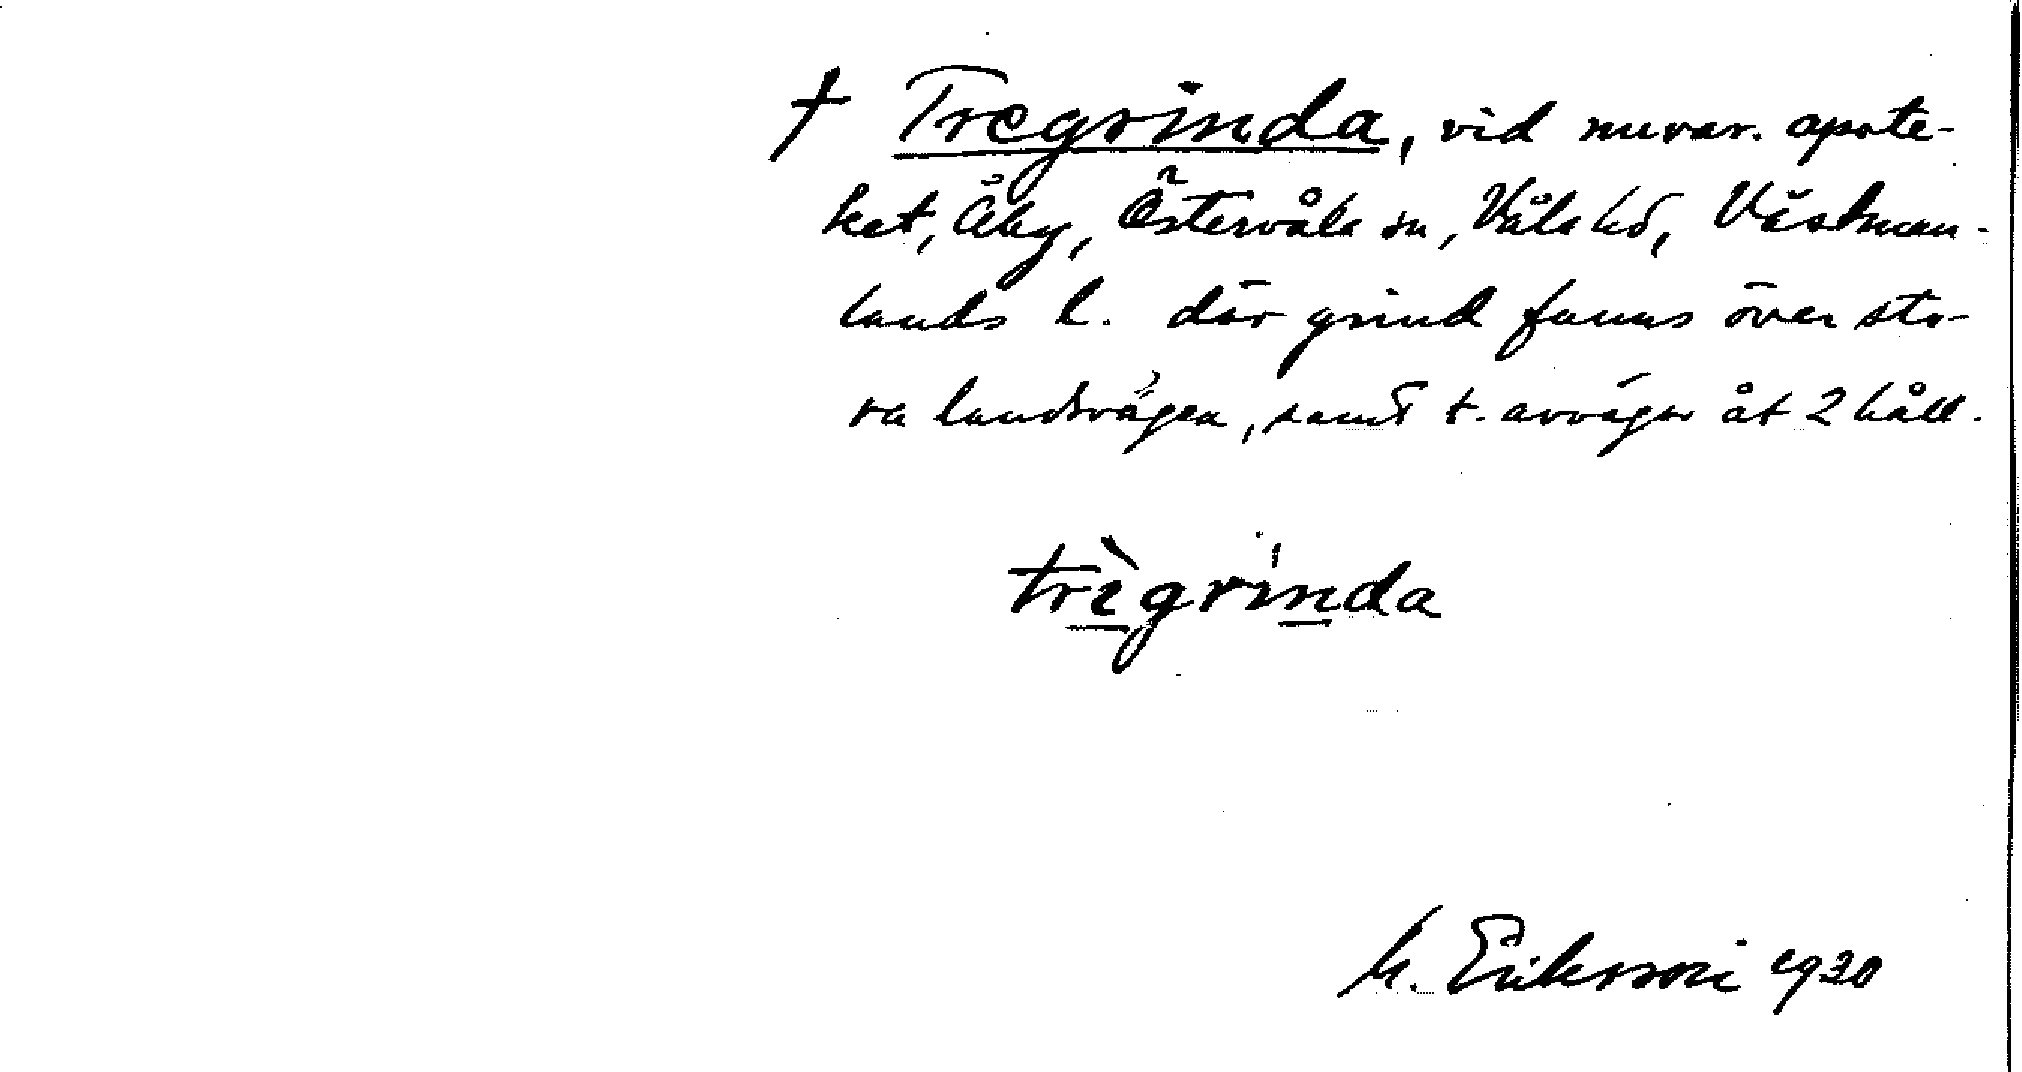 † Tregrinda, vid nuvar. apote-
ket, Åby, Östervåla sn, Våla hd, Västman-
lands l. där grind fanns över sto-
ra landsvägen, samt t. avvägar åt 2 håll.
trègrinda
M. Eriksson 1930